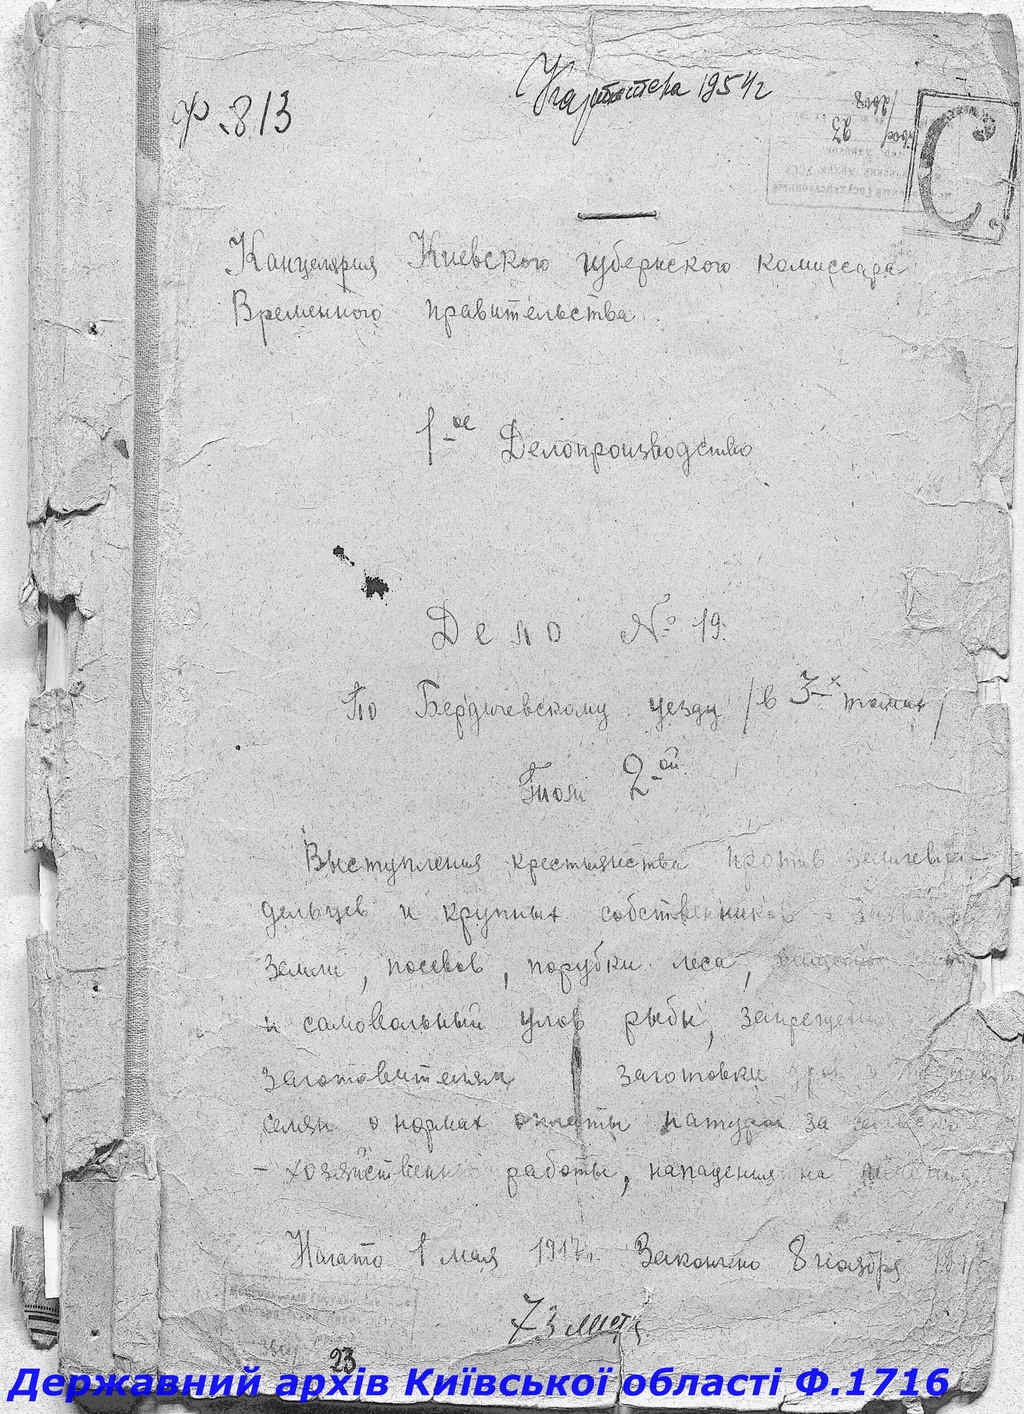 Картотека 1954 г
Ф. 813
С.
Канцелярия Киевского губернского комиссара
Временного правительства.
1-ое Делопроизводство
Дело № 19.
По Бердичевскому уезду /в 3-х томах/
Том 2-ой
Выступления крестьянства против землевла-
дельцев и крупных собственников
земли, посевов, порубки леса,
и самовольный улов рыбы, запрещение
заготовителям заготовки дров и
селян о нормах оплаты натурой за
- хозяйственные работы, нападения на
Начато 1 мая 1917 г. Закончено 8 ноября 1917
73 листа
23
Державний архів Київської області Ф.1716